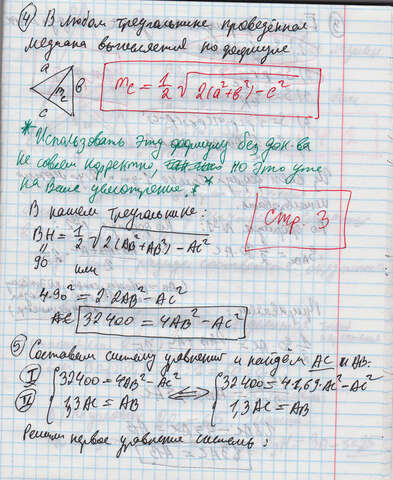 ④ В любом треугольнике проведённая
медиана вычисляется по формуле
a
b
c
m_c
m_c = 1/2 √(2(a²+b²)-c²)
* Использовать эту формулу без док-ва
не совсем корректно, но это уже
на Ваше усмотрение. *
В нашем треугольнике:
Стр. 3
BH = 1/2 √(2(AB²+AB²)-AC²)
90
или
4·90² = 2·2AB² - AC²
32400 = 4AB² - AC²
⑤ Составим систему уравнения и найдём AC и AB:
I { 32400 = 4AB² - AC² <=> { 32400 = 4·1,69·AC² - AC²
II { 1,3AC = AB { 1,3AC = AB
Решим первое уравнение системы: